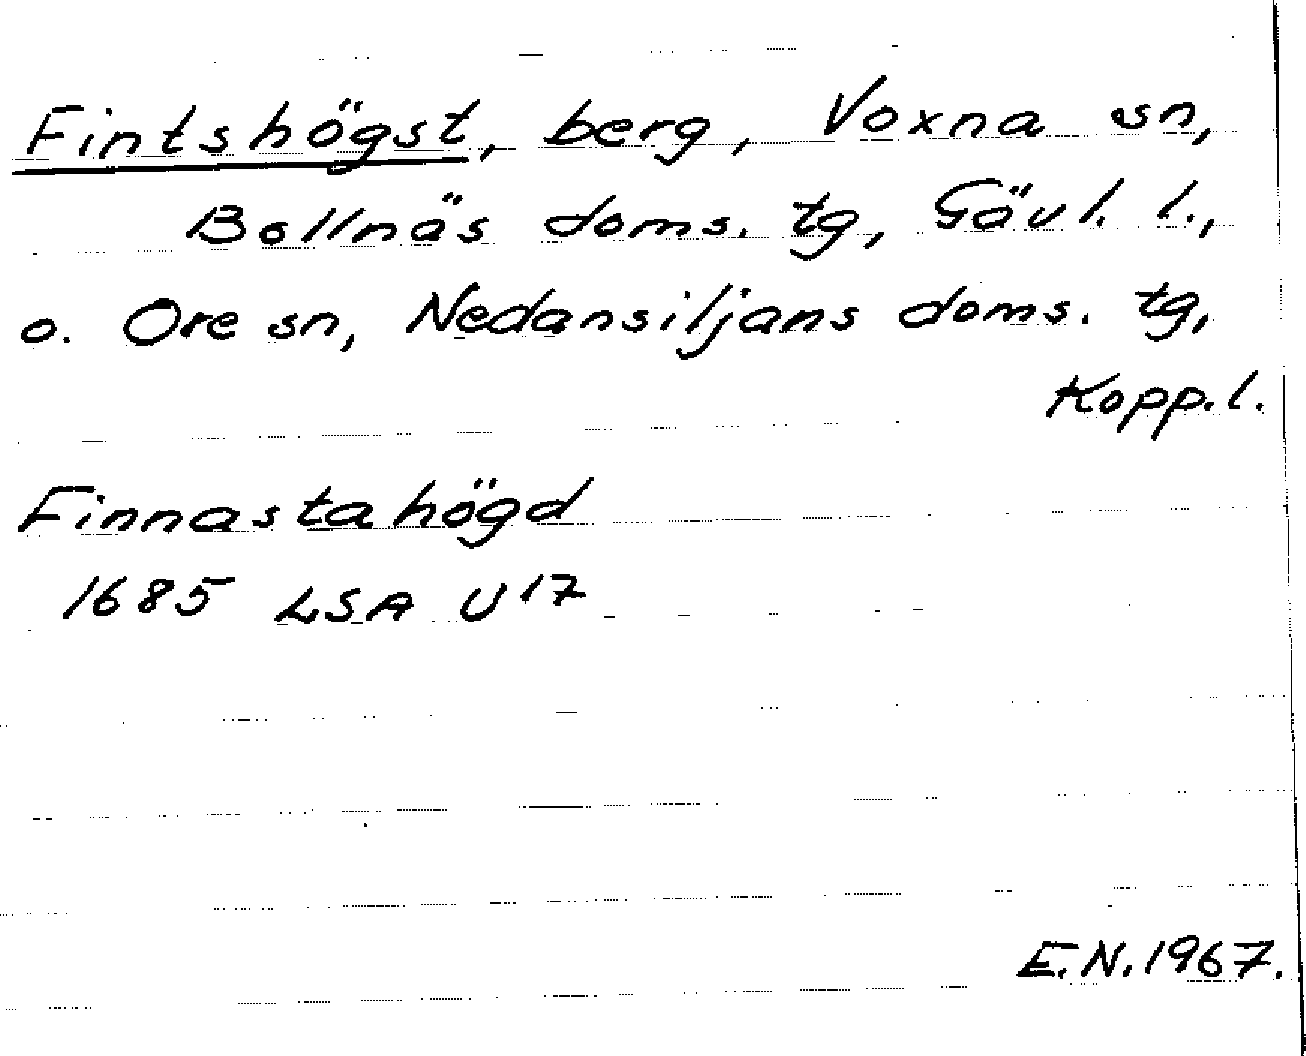 Fintshögst, berg, Voxna sn,
Bollnäs doms. tg, Gävl. l.,
o. Ore sn, Nedansiljans doms. tg,
Kopp. l.
Finnasta högd
1685 LSA U 17
E.N. 1967.